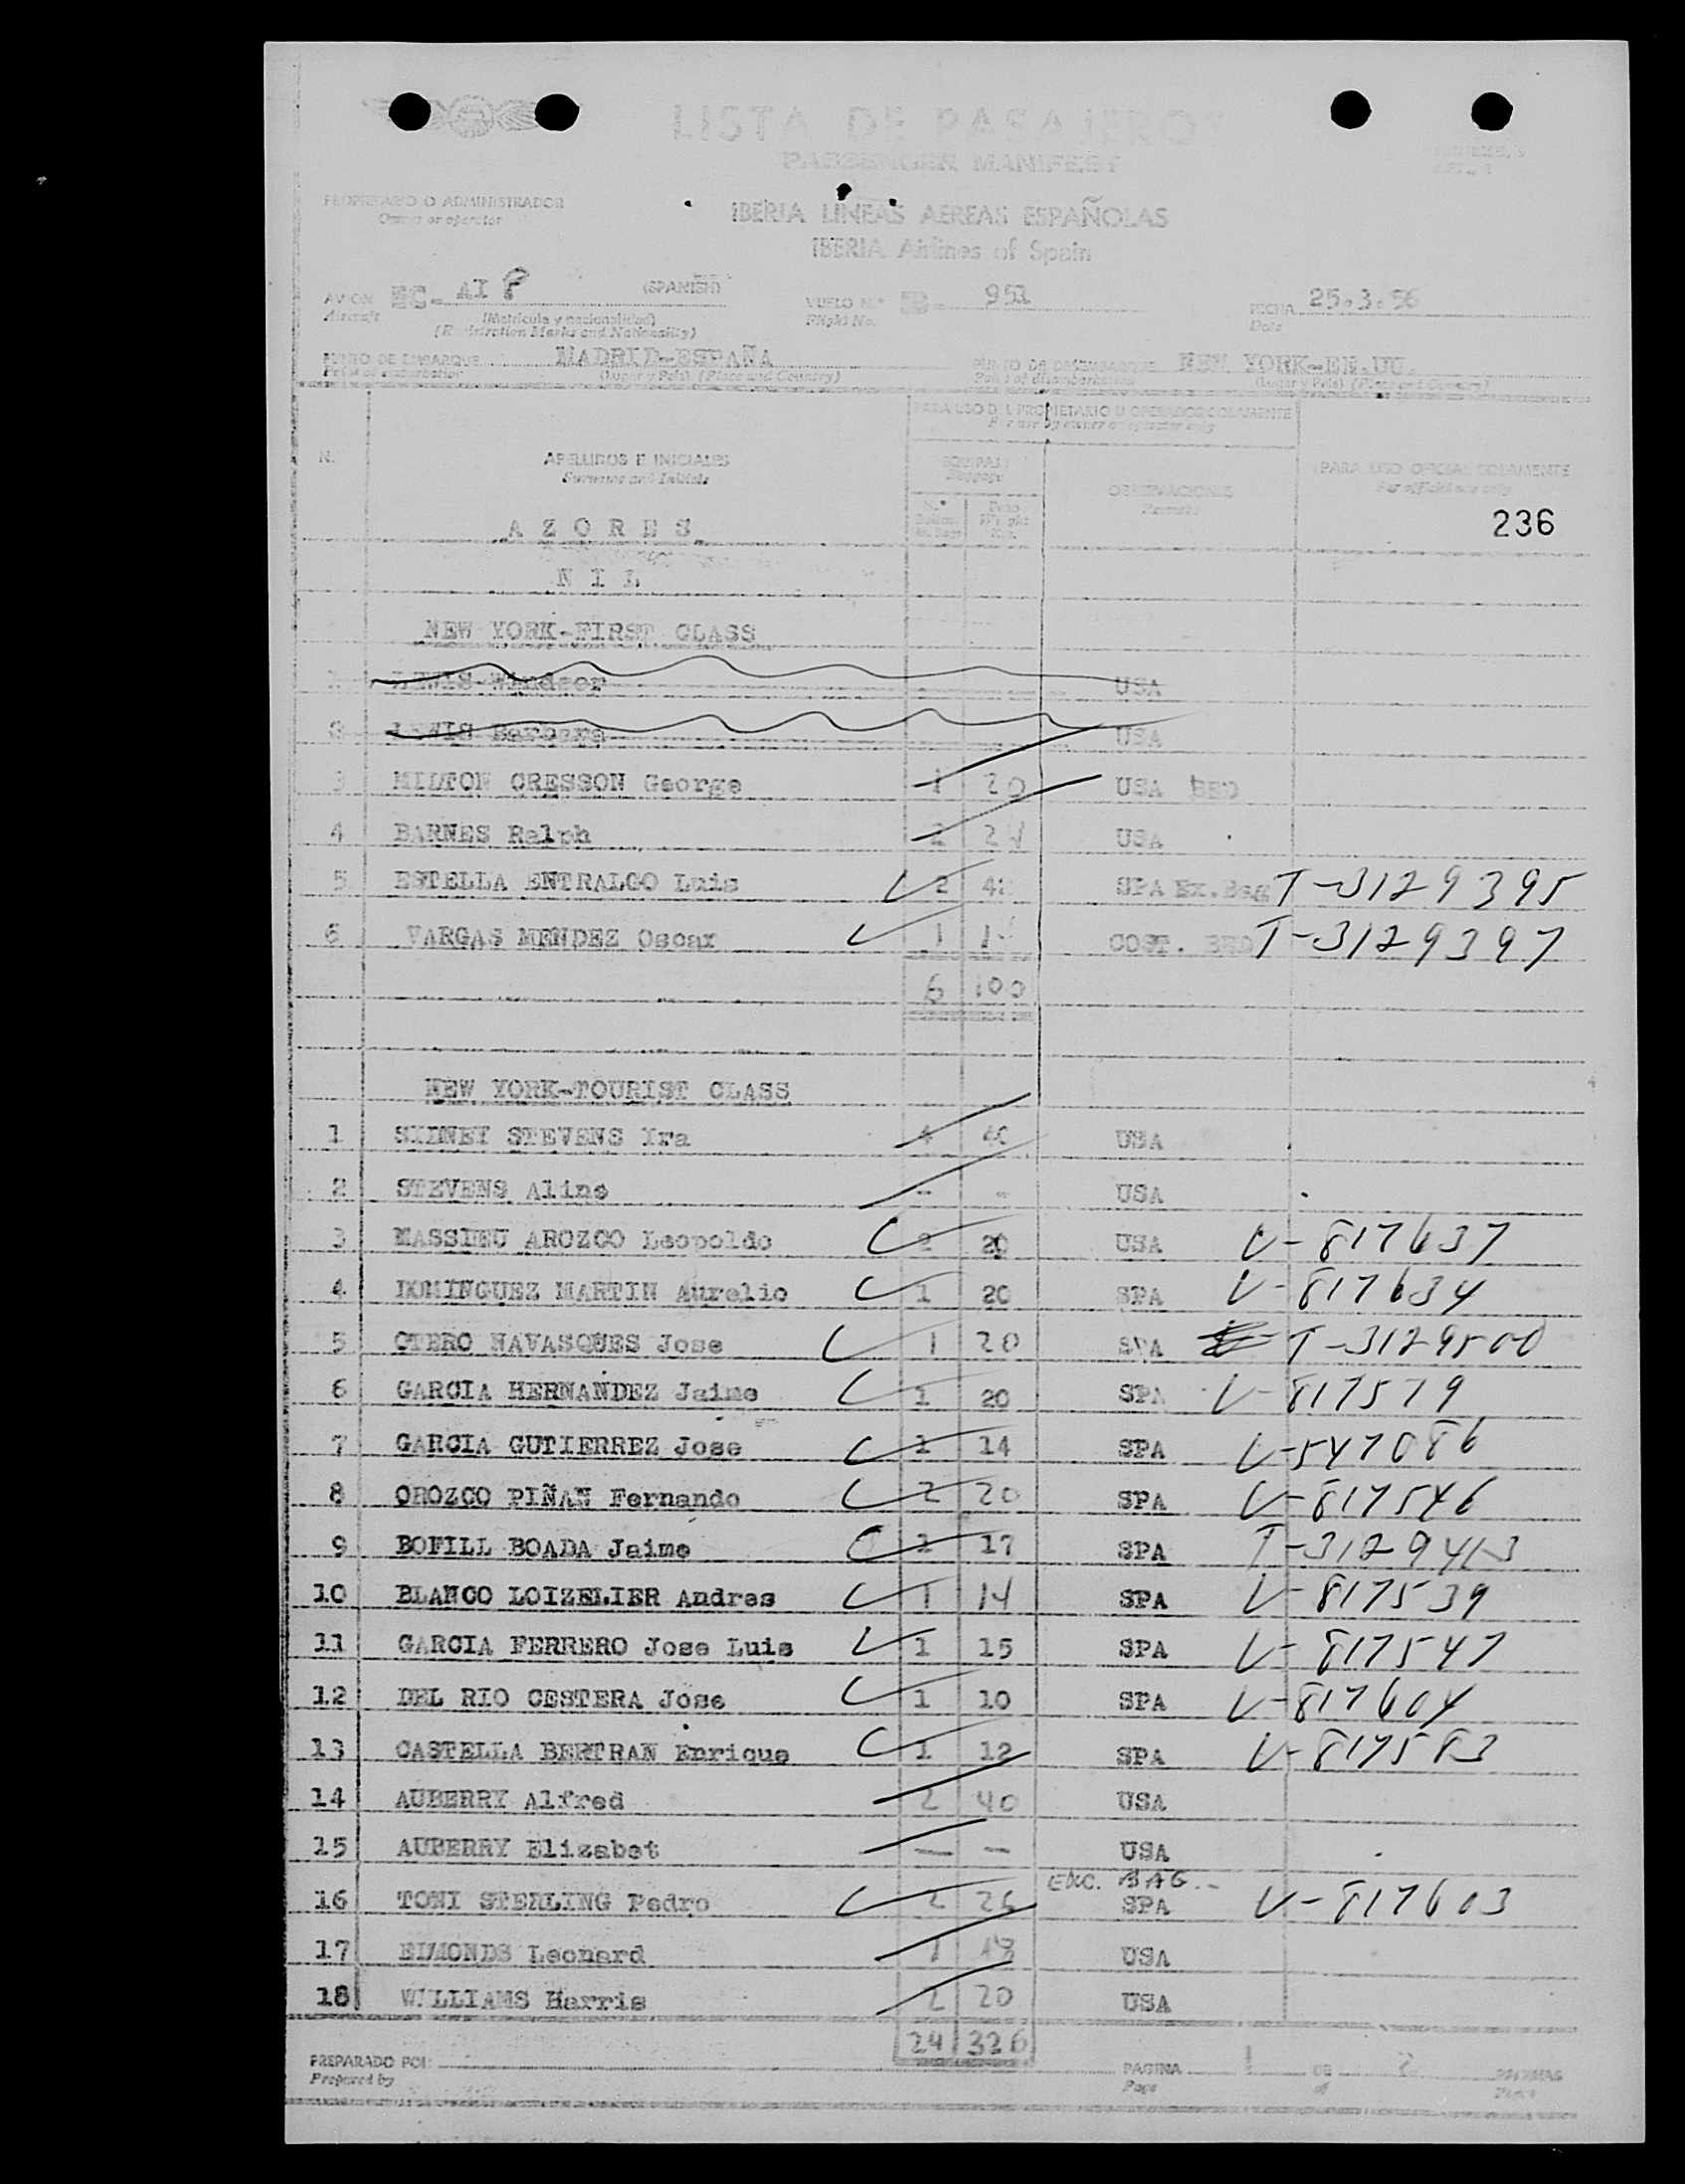 LISTA DE PASAJEROS
PASSENGER MANIFEST
PROPIETARIO O ADMINISTRADOR
Owner or operator
IBERIA LINEAS AEREAS ESPAÑOLAS
IBERIA Airlines of Spain
AVION EC- AI P (SPANISH) VUELO N.º IB- 951 FECHA 25.3.56
Aircraft (Matrícula y nacionalidad) Flight No. Date
(Registration Marks and Nationality)
PUNTO DE EMBARQUE MADRID-ESPAÑA PUNTO DE DESEMBARQUE NEW YORK-EE.UU.
Point of embarkation (Lugar y País) (Place and Country) Point of disembarkation (Lugar y País) (Place and Country)
PARA USO DEL PROPIETARIO U OPERADOR SOLAMENTE
For use by owner or operator only
N.º APELLIDOS E INICIALES EQUIPAJE OBSERVACIONES PARA USO OFICIAL SOLAMENTE
Surname and Initials Baggage Remarks For official use only
236
A Z O R E S
N I L
NEW YORK-FIRST CLASS
1 LEWIS Windsor USA
2 LEWIS Barbara USA
3 MILTON CRESSON George 1 20 USA BED
4 BARNES Ralph 2 24 USA
5 ESTELLA ENTRALGO Luis 2 42 SPA Ex.Bag T-3129395
6 VARGAS MENDEZ Oscar 1 14 COST. BED T-3129397
6 100
NEW YORK-TOURIST CLASS
1 SIDNEY STEVENS Ira 4 40 USA
2 STEVENS Aline - - USA
3 MASSIEU AROZCO Leopoldo 2 20 USA V-817637
4 DOMINGUEZ MARTIN Aurelio 1 20 SPA V-817634
5 OTERO NAVASQUES Jose 1 20 SPA T-3129500
6 GARCIA HERNANDEZ Jaime 1 20 SPA V-817579
7 GARCIA GUTIERREZ Jose 1 14 SPA V-547086
8 OROZCO PIÑAN Fernando 2 20 SPA V-817546
9 BOFILL BOADA Jaime 1 17 SPA T-3129413
10 BLANCO LOIZELIER Andres 1 14 SPA V-817539
11 GARCIA FERRERO Jose Luis 1 15 SPA V-817547
12 DEL RIO CESTERA Jose 1 10 SPA V-817604
13 CASTELLA BERTRAN Enrique 1 12 SPA V-817583
14 AUBERRY Alfred 2 40 USA
15 AUBERRY Elizabet — — USA
EXC. BAG.
16 TONI STERLING Pedro 2 26 SPA V-817603
17 EIMONDS Leonard 1 18 USA
18 WILLIAMS Harris 2 20 USA
24 326
PREPARADO POR: PAGINA 1 DE 2 PAGINAS
Prepared by Page of